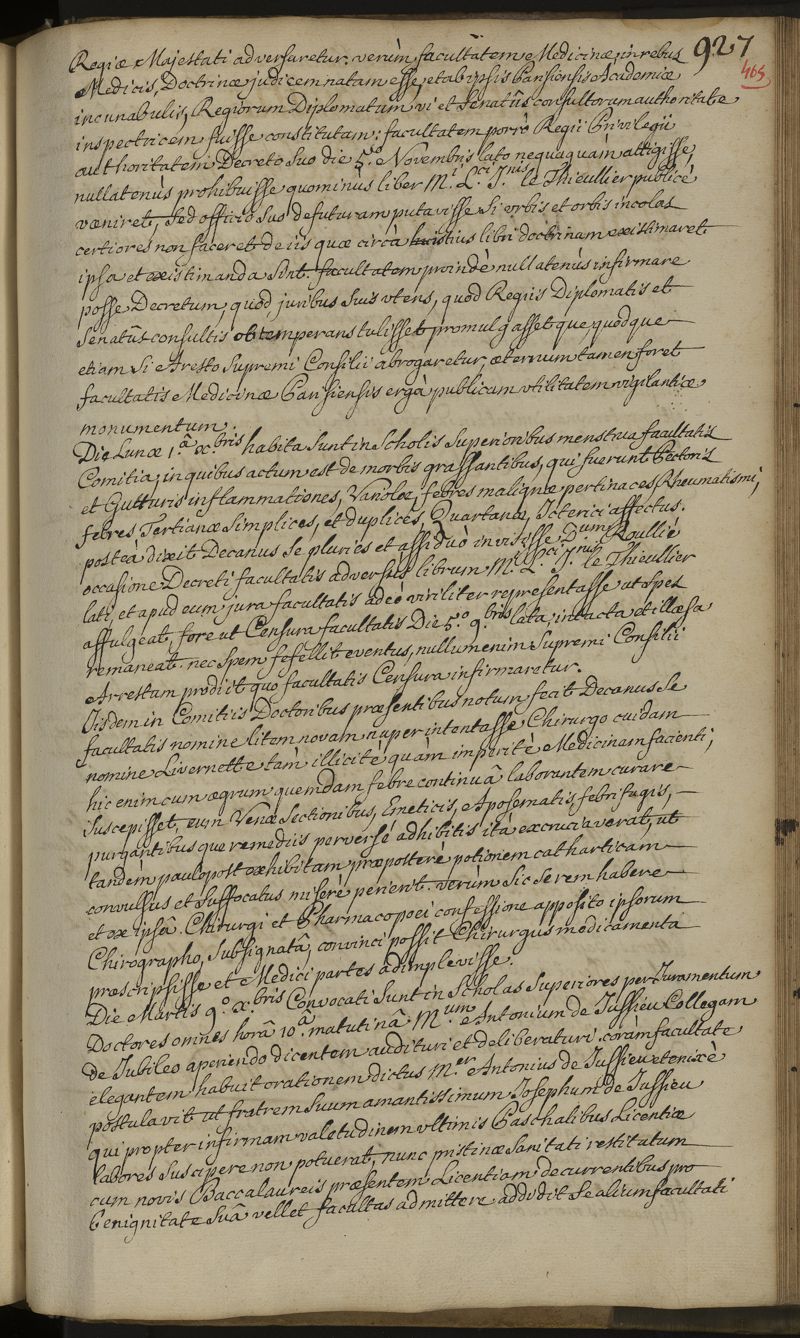 927
465
Regiæ Majestati adversaretur. verùm facultatem Medicinæ in rebus
Medicis, Doctrinæ judicem natam esse, et ab ipsis Parisiensis Academiæ
incunabulis, Regiorum Diplomatum vi et Senatûs consultorum authoritate
inspectricem fuisse constitutam; facultatem porrò Regii Privilegii
authoritatem Decreto suo die 5.º Novembris lato nequaquàm attigisse,
nullatenùs prohibuisse quominus liber M.i L.ci J.nis le Thieullier publicè
væniret, sed officio suo defuturam putavisse si urbis et orbis incolas
certiores non faceret de iis quæ circà hujus libri doctrinam existimaret
ipsa et existimanda sint. facultatem proindè nullatenùs infirmare
posse Decretum, quod juribus suis utens, quod Regiis Diplomatis et
Senatûs consultis obtemperans tulisset promulgassetque, quodque
etiam si Aresto Supremi Consilii abrogaretur, æternum tamen foret
facultatis Medicinæ Parisiensis ergà publicam utilitatem vigilantiæ
monumentum.
Die Lunæ 1.â x.bris habita sunt in Scholis Superioribus menstrua facultatis
Comitia; in quibus actum est de morbis grassantibus, qui fuerunt Pectoris
et Gutturis inflammationes, Variolæ, febres malignæ pertinaces, Rheumatismi,
febres Tertianæ simplices, et duplices, Quartanæ, Icterici affectus.
posteà dixit Decanus se pluries et assiduò invisisse D.um Roullié
occasione Decreti facultatis adversùs librum M.i L.ci J.nis le Thieullier
lati, et apud eum jura facultatis adeò viriliter representasse ut spes
affulgeat, fore ut Censura facultatis Die 5.º 9.bris lata, intacta et illæsa
remaneat. nec spem fefellit eventus, nullum enim Supremi Consilii
Arrestum prodiit quo facultatis Censura infirmaretur.
Iisdem in Comitiis Doctoribus præsentibus notum fecit Decanus se
facultatis nomine litem novam nuper intentasse Chirurgo cuidam
nomine Livernette tàm illicitè quàm imperitè Medicinam facienti;
hic enim cum ægrum quemdam febre continuâ laborantem curare
suscepisset, eum Venæ sectionibus, Emeticis, Aposematis, febrifugis,
purgantibusque remediis perversè adhibitis ità excruciaverat, ut
tandem paulò post exhibitam præposterè potionem catharticam
convulsus et suffocatus miserè perierit. verùm sic se rem habere
et ex ipsâ Chirurgi et Pharmacopoei confessione apposito ipsorum
Chirographo, subsignatâ, convinci possit Chirurgus medicamenta
præscripsisse et Medici partes adimplevisse.
Die Martis 9.º x.bris Convocati sunt in Scholas Superiores per Juramentum
Doctores omnes horâ 10.â matutinâ M.um Antonium de Jussieu Collegam
de Jubileo aperiendo dicentem audituri et deliberaturi. coràm facultate
elegantem habuit orationem dictus M.er Antonius de Jussieu et enixè
postulavit ut fratrem suum amantissimum Josephum de Jussieu
qui propter infirmam valetudinem ultimis Paschalibus Licentiæ
labores suscipere non potuerat, nunc pristinæ sanitati restitutum
cum novis Baccalaureis præsentem Licentiam decurrentibus pro
benignitate suâ vellet facultas admittere. addidit se alium facultati